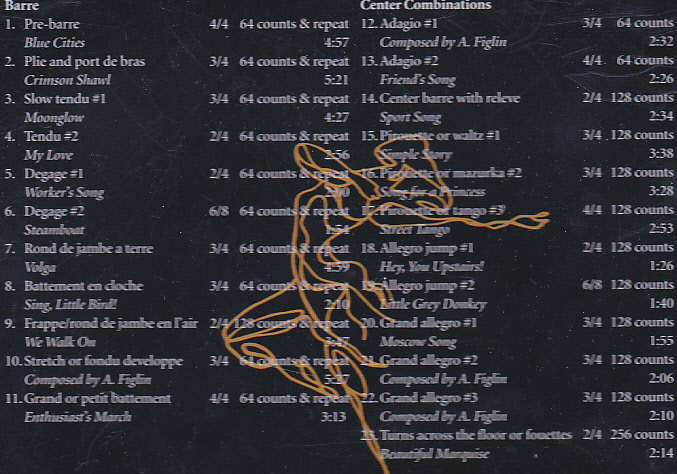 Barre
1. Pre-barre 4/4 64 counts & repeat
Blue Cities 4:57
2. Plie and port de bras 3/4 64 counts & repeat
Crimson Shawl 5:21
3. Slow tendu #1 3/4 64 counts & repeat
Moonglow 4:27
4. Tendu #2 2/4 64 counts & repeat
My Love 2:56
5. Degage #1 2/4 64 counts & repeat
Worker's Song
6. Degage #2 6/8 64 counts & repeat
Steamboat 1:54
7. Rond de jambe a terre 3/4 64 counts & repeat
Volga 4:59
8. Battement en cloche 3/4 64 counts & repeat
Sing, Little Bird! 2:10
9. Frappe/rond de jambe en l'air 2/4 128 counts & repeat
We Walk On 3:47
10. Stretch or fondu developpe 3/4 64 counts & repeat
Composed by A. Figlin 5:27
11. Grand or petit battement 4/4 64 counts & repeat
Enthusiast's March 3:13
Center Combinations
12. Adagio #1 3/4 64 counts
Composed by A. Figlin 2:32
13. Adagio #2 4/4 64 counts
Friend's Song 2:26
14. Center barre with releve 2/4 128 counts
Sport Song 2:34
15. Pirouette or waltz #1 3/4 128 counts
Simple Story 3:38
16. Pirouette or mazurka #2 3/4 128 counts
Song for a Princess 3:28
17. Pirouette or tango #3 4/4 128 counts
Street Tango 2:53
18. Allegro jump #1 2/4 128 counts
Hey, You Upstairs! 1:26
19. Allegro jump #2 6/8 128 counts
Little Grey Donkey 1:40
20. Grand allegro #1 3/4 128 counts
Moscow Song 1:55
21. Grand allegro #2 3/4 128 counts
Composed by A. Figlin 2:06
22. Grand allegro #3 3/4 128 counts
Composed by A. Figlin 2:10
23. Turns across the floor or fouettes 2/4 256 counts
Beautiful Marquise 2:14